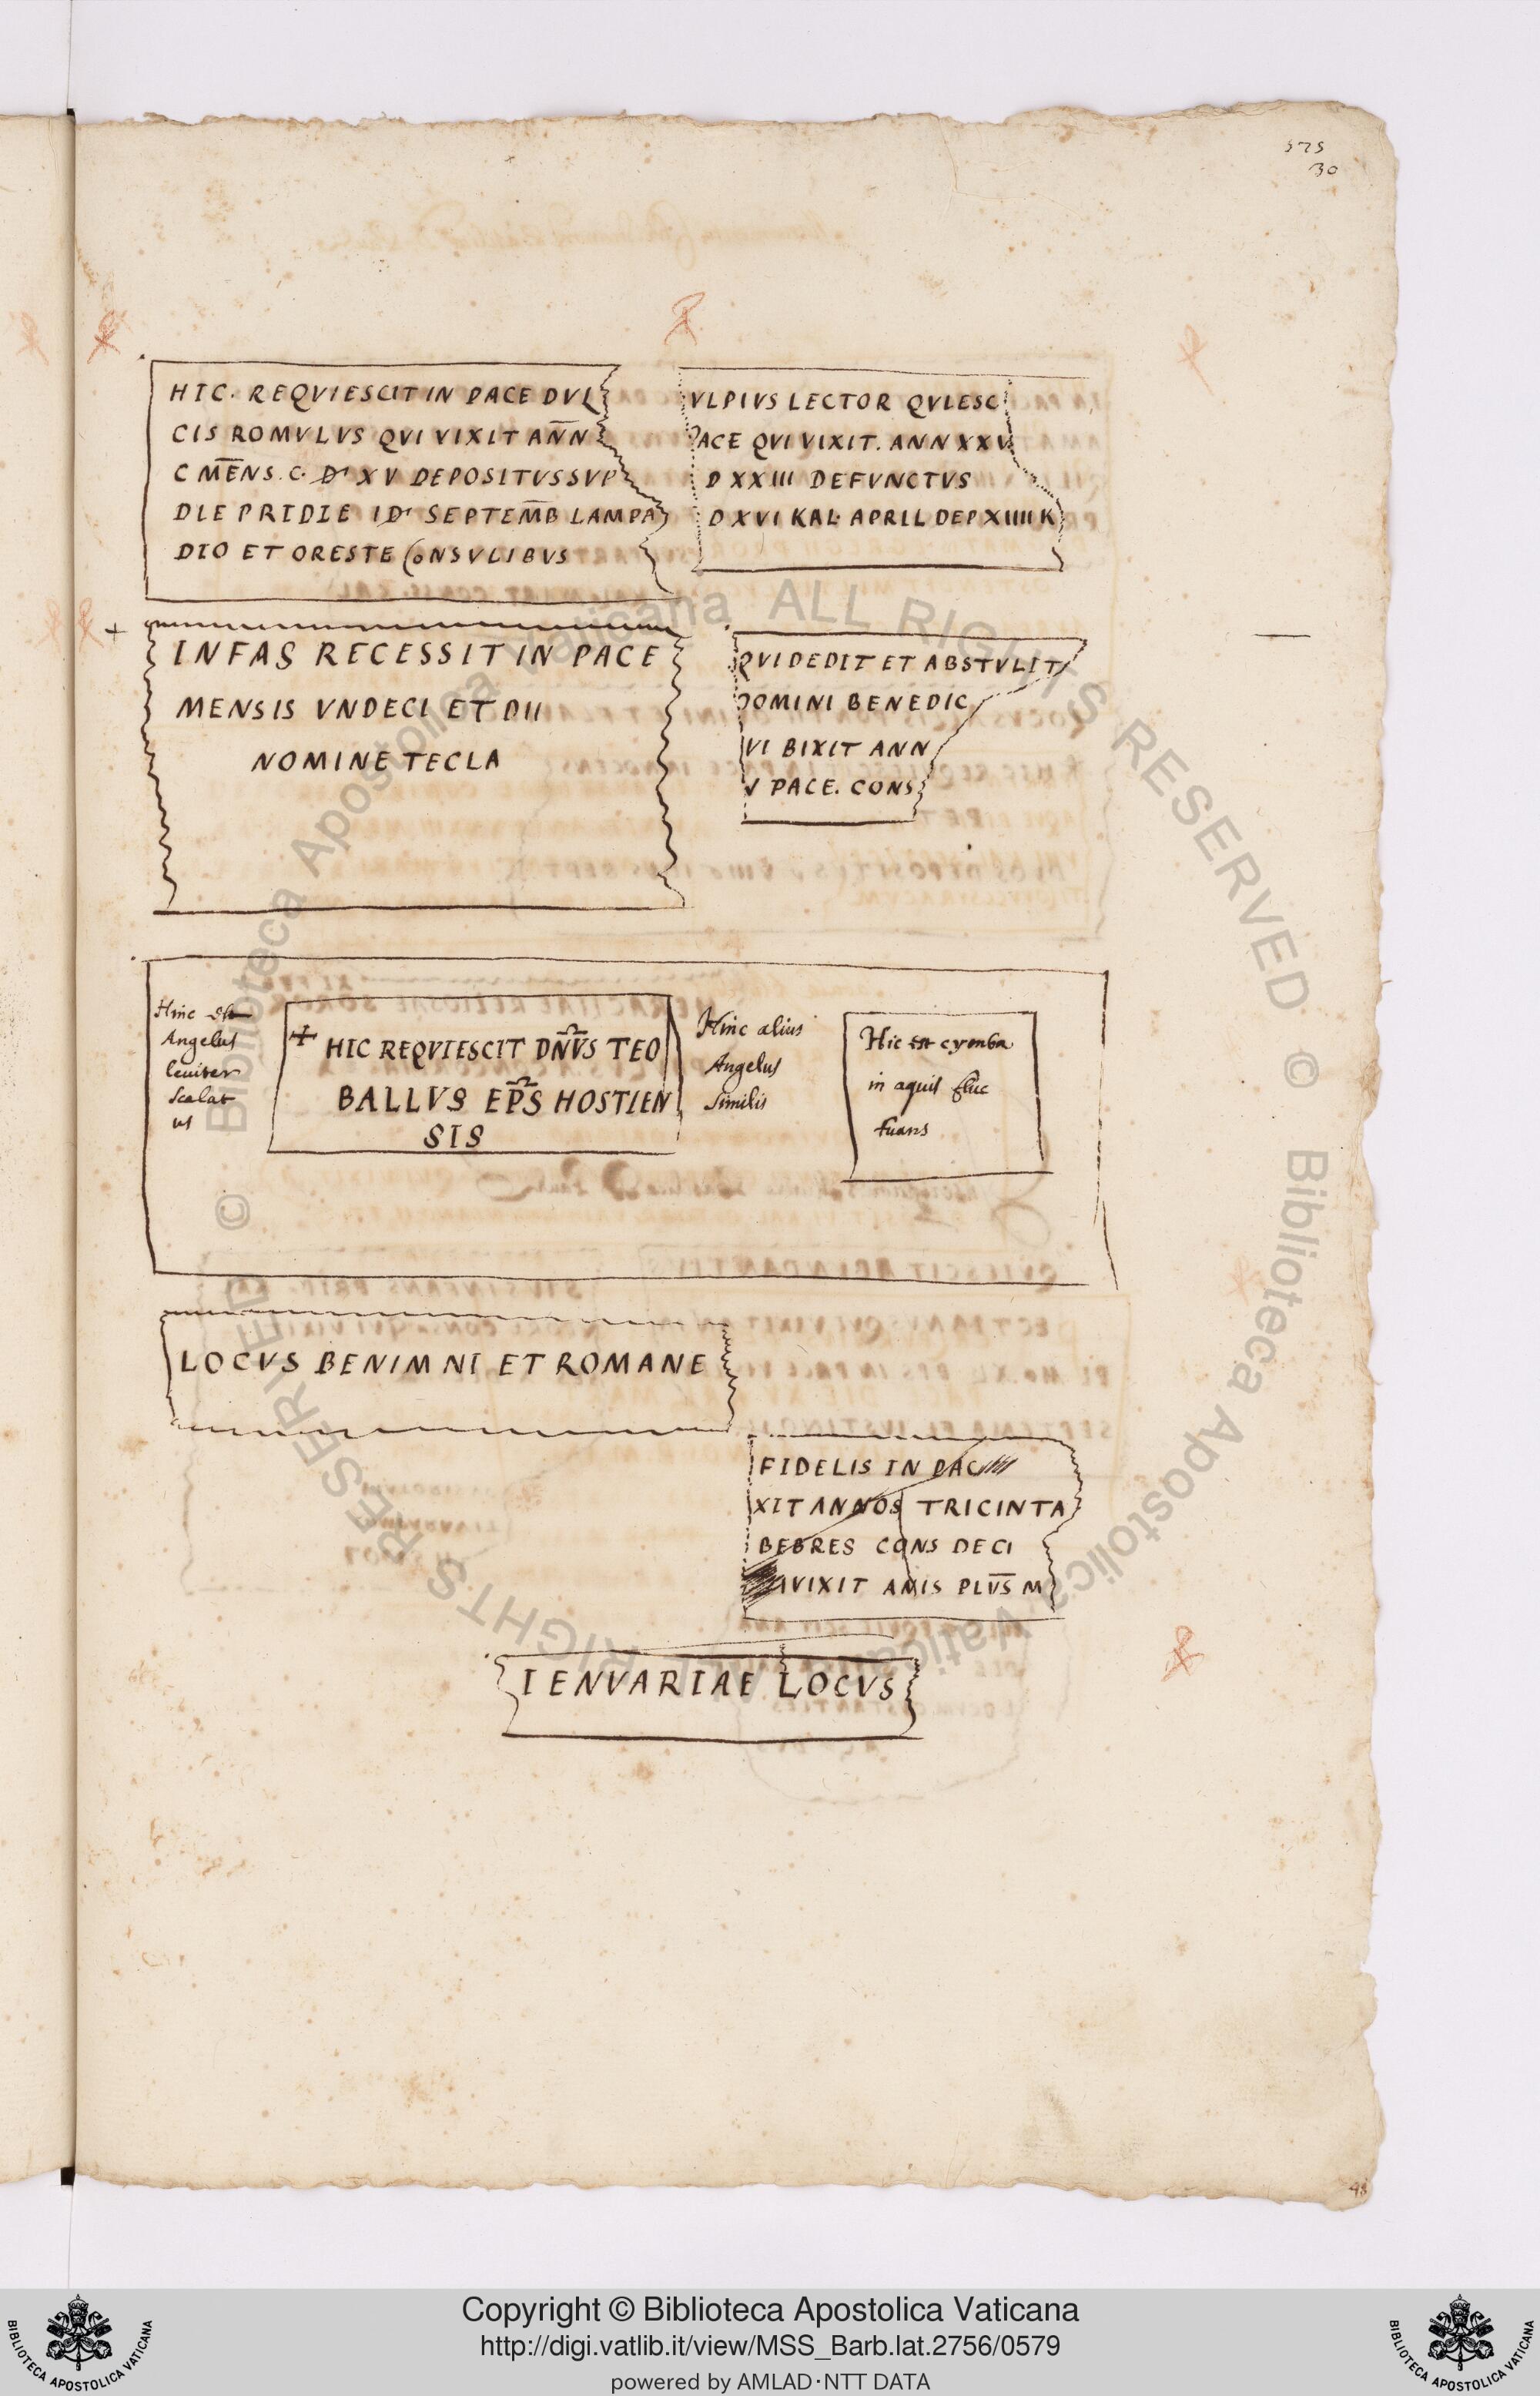 575
30
HIC. REQVIESCIT IN PACE DVL
CIS ROMVLVS QVI VIXIT AN̅N
C ME̅NS. C. D' XV DEPOSITVS SVP
DIE PRIDIE ID' SEPTEM̅B LAMPA
DIO ET ORESTE CONSVLIBVS
VLPIVS LECTOR QVIESC
PACE QVI VIXIT. ANN XXV
D XXIII DEFVNCTVS
D XVI KAL APRIL DEP XIIII K
+ INFAS RECESSIT IN PACE
MENSIS VNDECI ET DII
NOMINE TECLA
QVI DEDIT ET ABSTVLIT
DOMINI BENEDIC
VI BIXIT ANN
PACE. CONS
Hinc
Angelus
leuiter
scalat
us
+ HIC REQVIESCIT DN̅V̅S TEO
BALLVS EP̅S HOSTIEN
SIS
Hinc alius
Angelus
similis
Hic est cymba
in aquis fluc
tuans
LOCVS BENIMNI ET ROMANE
FIDELIS IN PAC
XIT ANNOS TRICINTA
BEBRES CONS DECI
IVIXIT ANIS PLV̅S M
IENVARIAE LOCVS
48
© Biblioteca Apostolica Vaticana ALL RIGHTS RESERVED
© Biblioteca Apostolica Vaticana ALL RIGHTS RESERVED
Copyright © Biblioteca Apostolica Vaticana
http://digi.vatlib.it/view/MSS_Barb.lat.2756/0579
powered by AMLAD·NTT DATA
BIBLIOTECA APOSTOLICA VATICANA
BIBLIOTECA APOSTOLICA VATICANA